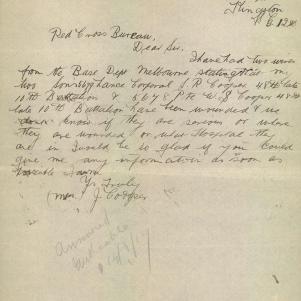 Red Cross Bureau,
Dear Sir,
I have had two wires
from the Base Dept Melbourne stating that
two Sons Lance Corporal J. R. Cooper 48th late
10th Battalion & 6648 Pte W. S. Cooper 48th
late 10th Battalion have been wounded
know if they are serious or where
they are wounded or what Hospital they
are in I would be glad if you could
give me any information as soon as
Yrs Truly
(Mrs) J Cooper
Answered